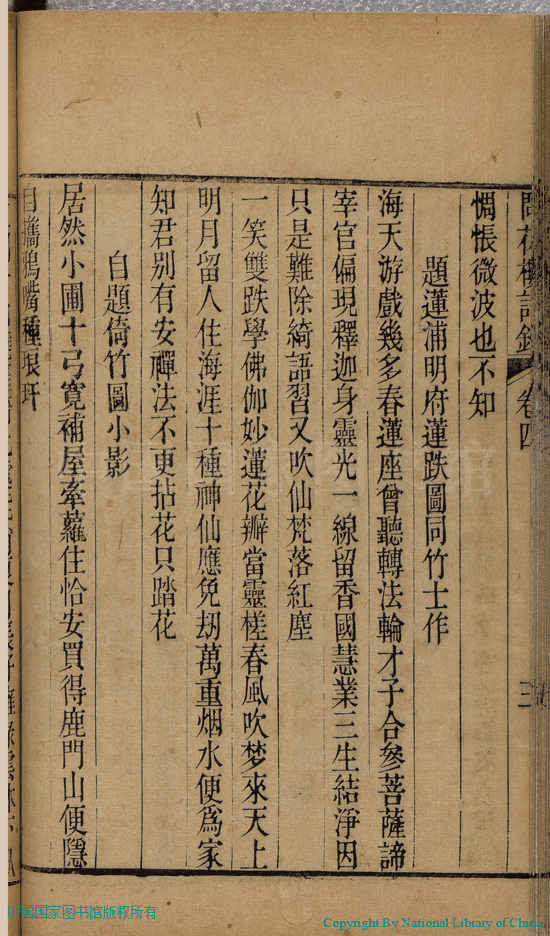 問花樓詩鈔 卷四 三
惆悵微波也不知
題蓮浦明府蓮趺圖同竹士作
海天游戲幾多春蓮座曾聽轉法輪才子合參菩薩諦
宰官偏現釋迦身靈光一線留香國慧業三生結淨因
只是難除綺語習又吹仙梵落紅塵
一笑雙趺學佛伽妙蓮花瓣當靈槎春風吹梦來天上
明月留人住海涯十種神仙應免刼萬重烟水便爲家
知君别有安禪法不更拈花只踏花
自題倚竹圖小影
居然小圃十弓寬補屋牽蘿住恰安買得鹿門山便隱
自擕鴉嘴種琅玕
中国国家图书馆版权所有
Copyright By National Library of China.